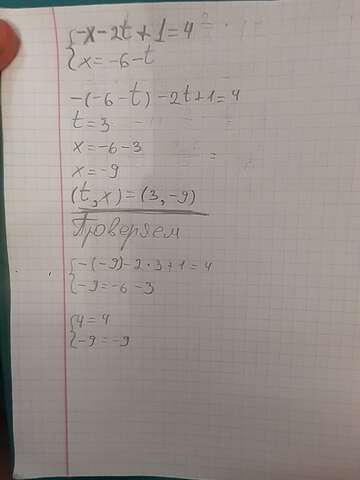 {-x-2t+1=4
{x=-6-t
-(-6-t)-2t+1=4
t=3
x=-6-3
x=-9
(t,x)=(3,-9)
Проверяем
{-(-9)-2·3+1=4
{-9=-6-3
{4=4
{-9=-9